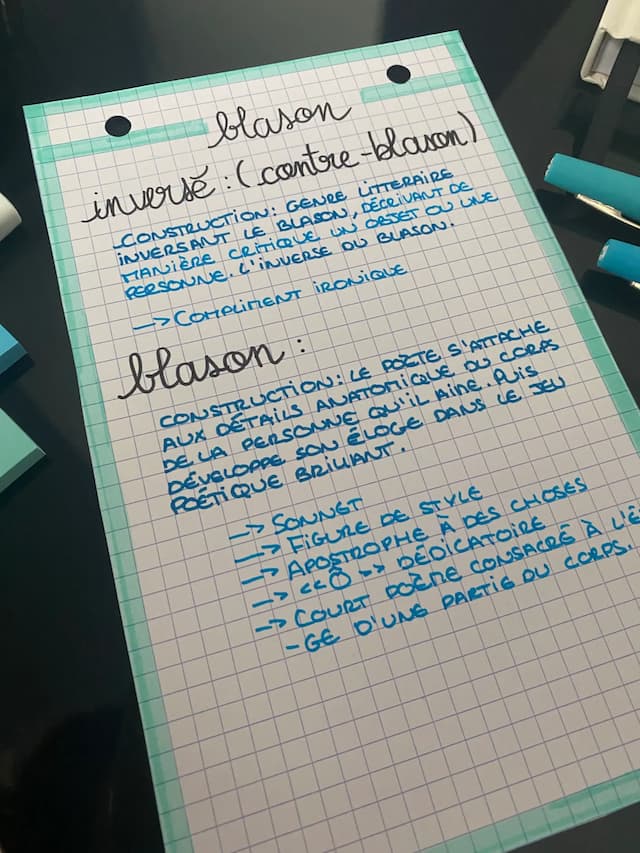 blason
inversé : (contre-blason)
CONSTRUCTION : GENRE LITTERAIRE
INVERSANT LE BLASON, DÉCRIVANT DE
MANIÈRE CRITIQUE UN OBJET OU UNE
PERSONNE. L'INVERSE DU BLASON.
—> COMPLIMENT IRONIQUE
blason :
CONSTRUCTION : LE POÈTE S'ATTACHE
AUX DÉTAILS ANATOMIQUE DU CORPS
DE LA PERSONNE QU'IL AIME. PUIS
DÉVELOPPE SON ÉLOGE DANS LE JEU
POÉTIQUE BRILLANT.
—> SONNET
—> FIGURE DE STYLE
—> APOSTROPHE À DES CHOSES
—> << Ô >> DÉDICATOIRE
—> COURT POÈME CONSACRÉ À L'É
-GE D'UNE PARTIE DU CORPS.